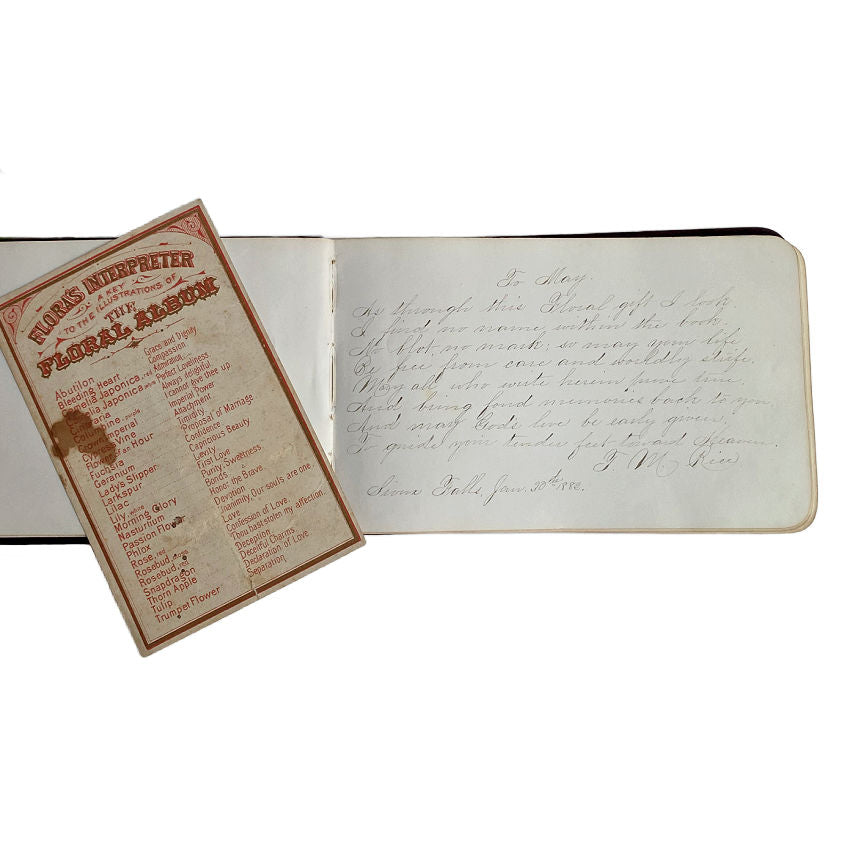 FLORA'S INTERPRETER
A KEY
TO THE ILLUSTRATIONS OF
THE
FLORAL ALBUM
Abutilon
Bleeding Heart
Japonica, red
Japonica, white
Columbine, purple
Imperial
Vine
Hour
Fuchsia
Geranium
Ladys Slipper
Larkspur
Lilac
Lily, white
Morning Glory
Nasturtium
Passion Flower
Phlox
Rose, red
Rosebud
Rosebud, red
Snapdragon
Thorn Apple
Tulip
Trumpet Flower
Grace and Dignity
Compassion
Admiration
Perfect Loveliness
Always delightful
I cannot give thee up
Imperial Power
Attachment
Timidity
Proposal of Marriage
Confidence
Capricious Beauty
Levity
First Love
Purity, Sweetness
Bonds
Honor the Brave
Devotion
Unanimity, Our souls are one.
Love
Confession of Love.
Thou hast stolen my affection.
Deception
Deceitful Charms
Declaration of Love
Separation
To May.
As through this Floral gift I look
I find no name within the book.
No blot, no mark; so may your life
Be free from care and worldly strife.
May all who write herein prove true.
And bring fond memories back to you
And may Gods love be early given,
To guide your tender feet toward Heaven.
F. M. Rice
Sioux Falls, Jan. 30th 1882.